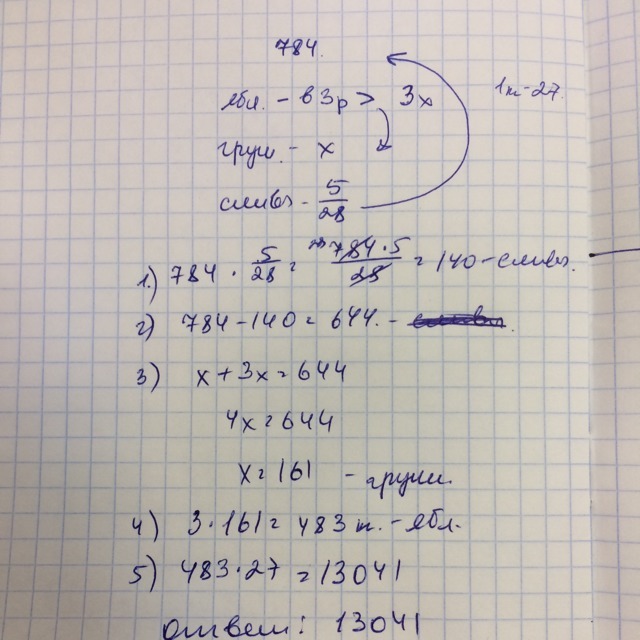 784.
ябл. - в 3 р > 3x 1 т - 27.
груш. - x
сливы - 5/28
1) 784 · 5/28 = 784 · 5/28 = 140 - сливы.
2) 784 - 140 = 644. -
3) x + 3x = 644
4x = 644
x = 161 - груши.
4) 3 · 161 = 483 т. - ябл.
5) 483 · 27 = 13041
ответ: 13041